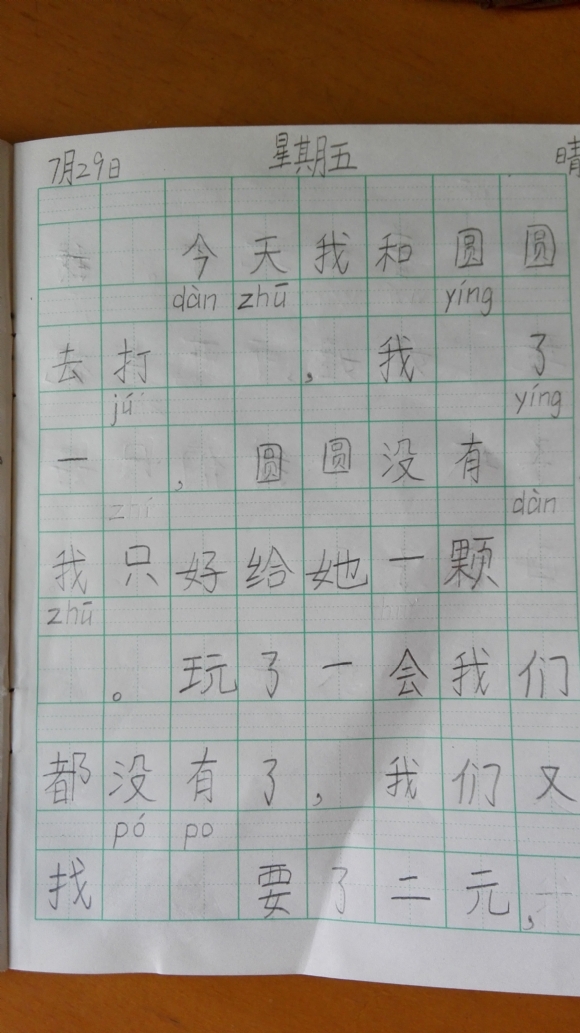 7月29日 星期五 晴
今天我和圆圆
dàn zhū yíng
去打，我 了
jú yíng
一 ，圆圆没有
zhǐ dàn
我只好给她一颗
zhū
。玩了一会我们
都没有了，我们又
pó po
找 要了二元，